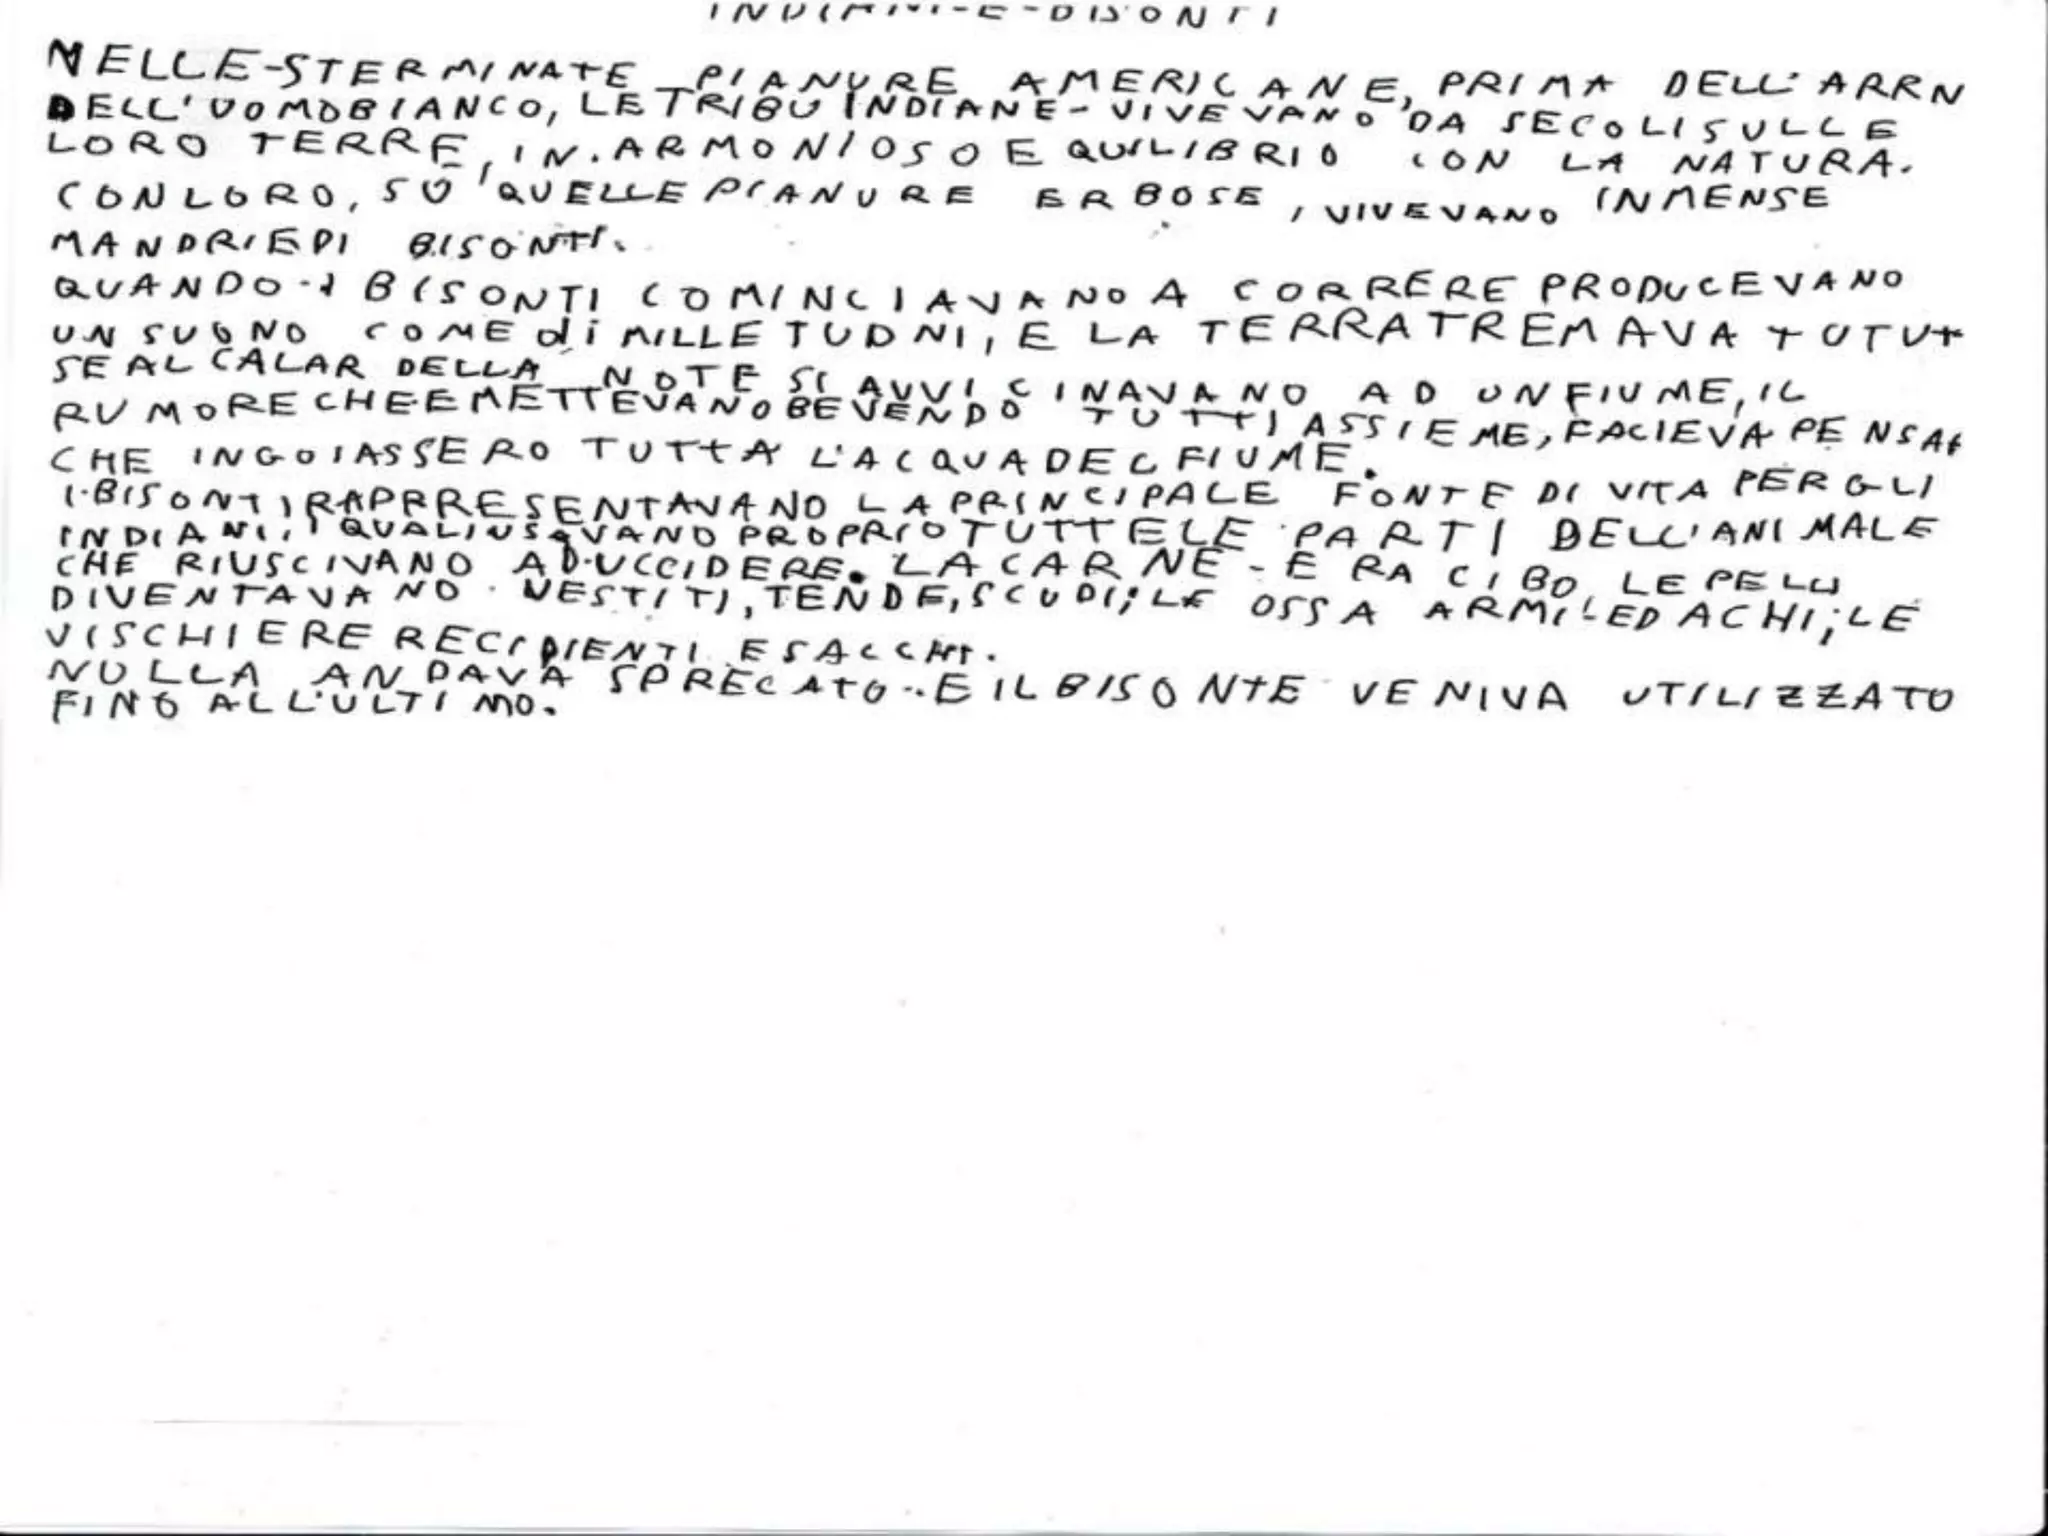 INDIANI-E-BISONTI
NELLE-STERMINATE PIANURE AMERICANE, PRIMA DELL'ARRN
DELL'UOMOBIANCO, LE TRIBU INDIANE-VIVEVANO DA SECOLI SULLE
LORO TERRE, IN. ARMONIOSO EQUILIBRIO CON LA NATURA.
CON LORO, SU' QUELLE PIANURE ERBOSE, VIVEVANO INMENSE
MANDRIE DI BISONTI.
QUANDO-I BISONTI COMINCIAVANO A CORRERE PRODUCEVANO
UN SUONO COME di MILLE TUONI, E LA TERRA TREMAVA TUTUT
SE AL CALAR DELLA NOTE SI AVVICINAVANO AD UN FIUME, IL
RUMORE CHE EMETTEVANO BEVENDO TUTTI ASSIEME, FACIEVA PENSAR
CHE INGOIASSERO TUTTA L'ACQUA DEL FIUME.
I. BISONTI RAPPRESENTAVANO LA PRINCIPALE FONTE DI VITA PER GLI
INDIANI, I QUALI USAVANO PROPRIO TUTTE LE PARTI DELL'ANIMALE
CHE RIUSCIVANO AD UCCIDERE. LA CARNE-ERA CIBO, LE PELLI
DIVENTAVANO VESTITI, TENDE, SCUDI; LE OSSA ARMI ED ACHI; LE
VISCHIERE RECIPIENTI E SACCHI.
NULLA ANDAVA SPRECATO.. E IL BISONTE VENIVA UTILIZZATO
FINO ALL'ULTIMO.